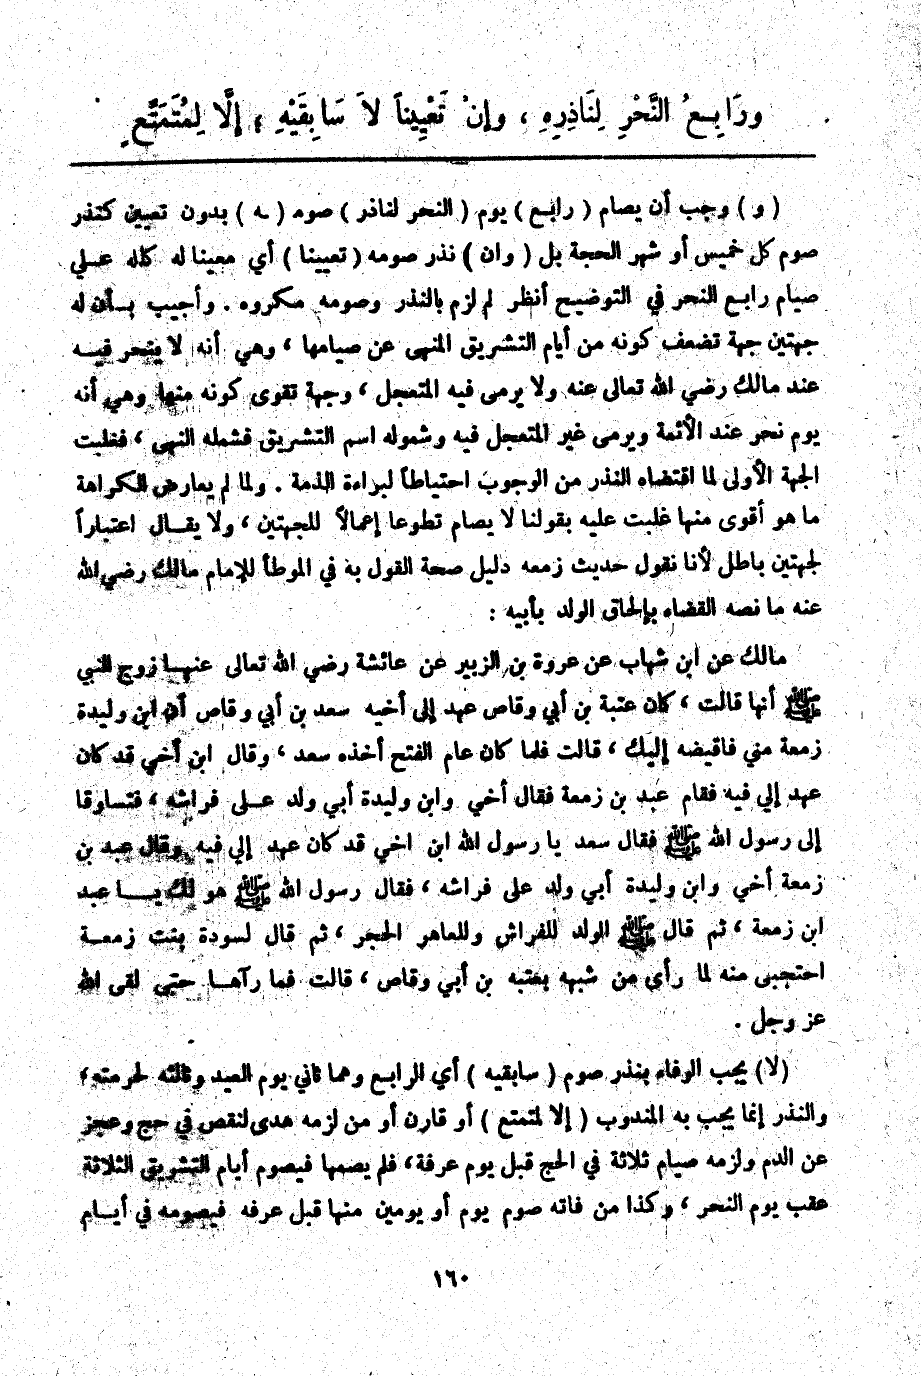 ورَابِعُ النَّحْرِ لِنَاذِرِهِ ، وإنْ تَعْيِيناً لاَ سَابِقَيْهِ ؛ إلَّا لِمُتَمَتِّعٍ
( و ) وجب أن يصام ( رابع ) يوم ( النحر لناذر ) صومه ( ـه ) بدون تعيين كنذر
صوم كل خميس أو شهر الحجة بل ( وان ) نذر صومه ( تعيينا ) أي معينا له كلله عـلي
صيام رابـع النحر في التوضيـح أنظر لم لزم بالنذر وصومه مكروه . وأجيب بـأن له
جهتين جهة تضعف كونه من أيام التشريق المنهى عن صيامها ، وهي أنه لا ينحر فيـه
عند مالك رضي الله تعالى عنه ولا يرمى فيه المتعجل ، وجهة تقوى كونه منها وهي أنه
يوم نحر عند الأئمة ويرمى غير المتعجل فيه وشموله اسم التشريق فشمله النهى ، فغلبت
الجهة الأولى لما اقتضاه النذر من الوجوب احتياطاً لبراءة الذمة . ولما لم يعارض الكراهة
ما هو أقوى منها غلبت عليه بقولنا لا يصام تطوعا إعمالاً للجهتين ، ولا يقـال اعتباراً
لجهتين باطل لأنا نقول حديث زمعه دليل صحة القول به في الموطأ للإمام مالك رضي الله
عنه ما نصه القضاء بإلحاق الولد بأبيه :
مالك عن ابن شهاب عن عروة بن الزبير عن عائشة رضي الله تعالى عنهـا زوج النبي
ﷺ أنها قالت ، كان عتبة بن أبي وقاص عهد إلى أخيه سعد بن أبي وقاص أن ابن وليدة
زمعة مني فاقبضه إليك ، قالت فلما كان عام الفتح أخذه سعد ، وقال ابن أخي قد كان
عهد إلي فيه فقام عبد بن زمعة فقال أخي وابن وليدة أبي ولد عـلى فراشه ، فتساوقا
إلى رسول الله ﷺ فقال سعد يا رسول الله ابن اخي قد كان عهد إلي فيه وقال عبد بن
زمعة أخي وابن وليدة أبي ولد على فراشه ، فقال رسول الله ﷺ هو لك يـا عبد
ابن زمعة ، ثم قال ﷺ الولد للفراش وللعاهر الحجر ، ثم قال لسودة بنت زمعـة
احتجبى منه لما رأى من شبهه بعتبه بن أبي وقاص ، قالت فما رآهـا حتى لقى الله
عز وجل .
(لا) يجب الوفاء بنذر صوم ( سابقيه ) أي الرابع وهما ثاني يوم العيد وثالثه لحرمته،
والنذر إنما يجب به المندوب ( إلا لمتمتع ) أو قارن أو من لزمه هدى لنقص في حج وعجز
عن الدم ولزمه صيام ثلاثة في الحج قبل يوم عرفة، فلم يصمها فيصوم أيام التشريق الثلاثة
عقب يوم النحر ، وكذا من فاته صوم يوم أو يومين منها قبل عرفه فيصومه في أيـام
١٦٠